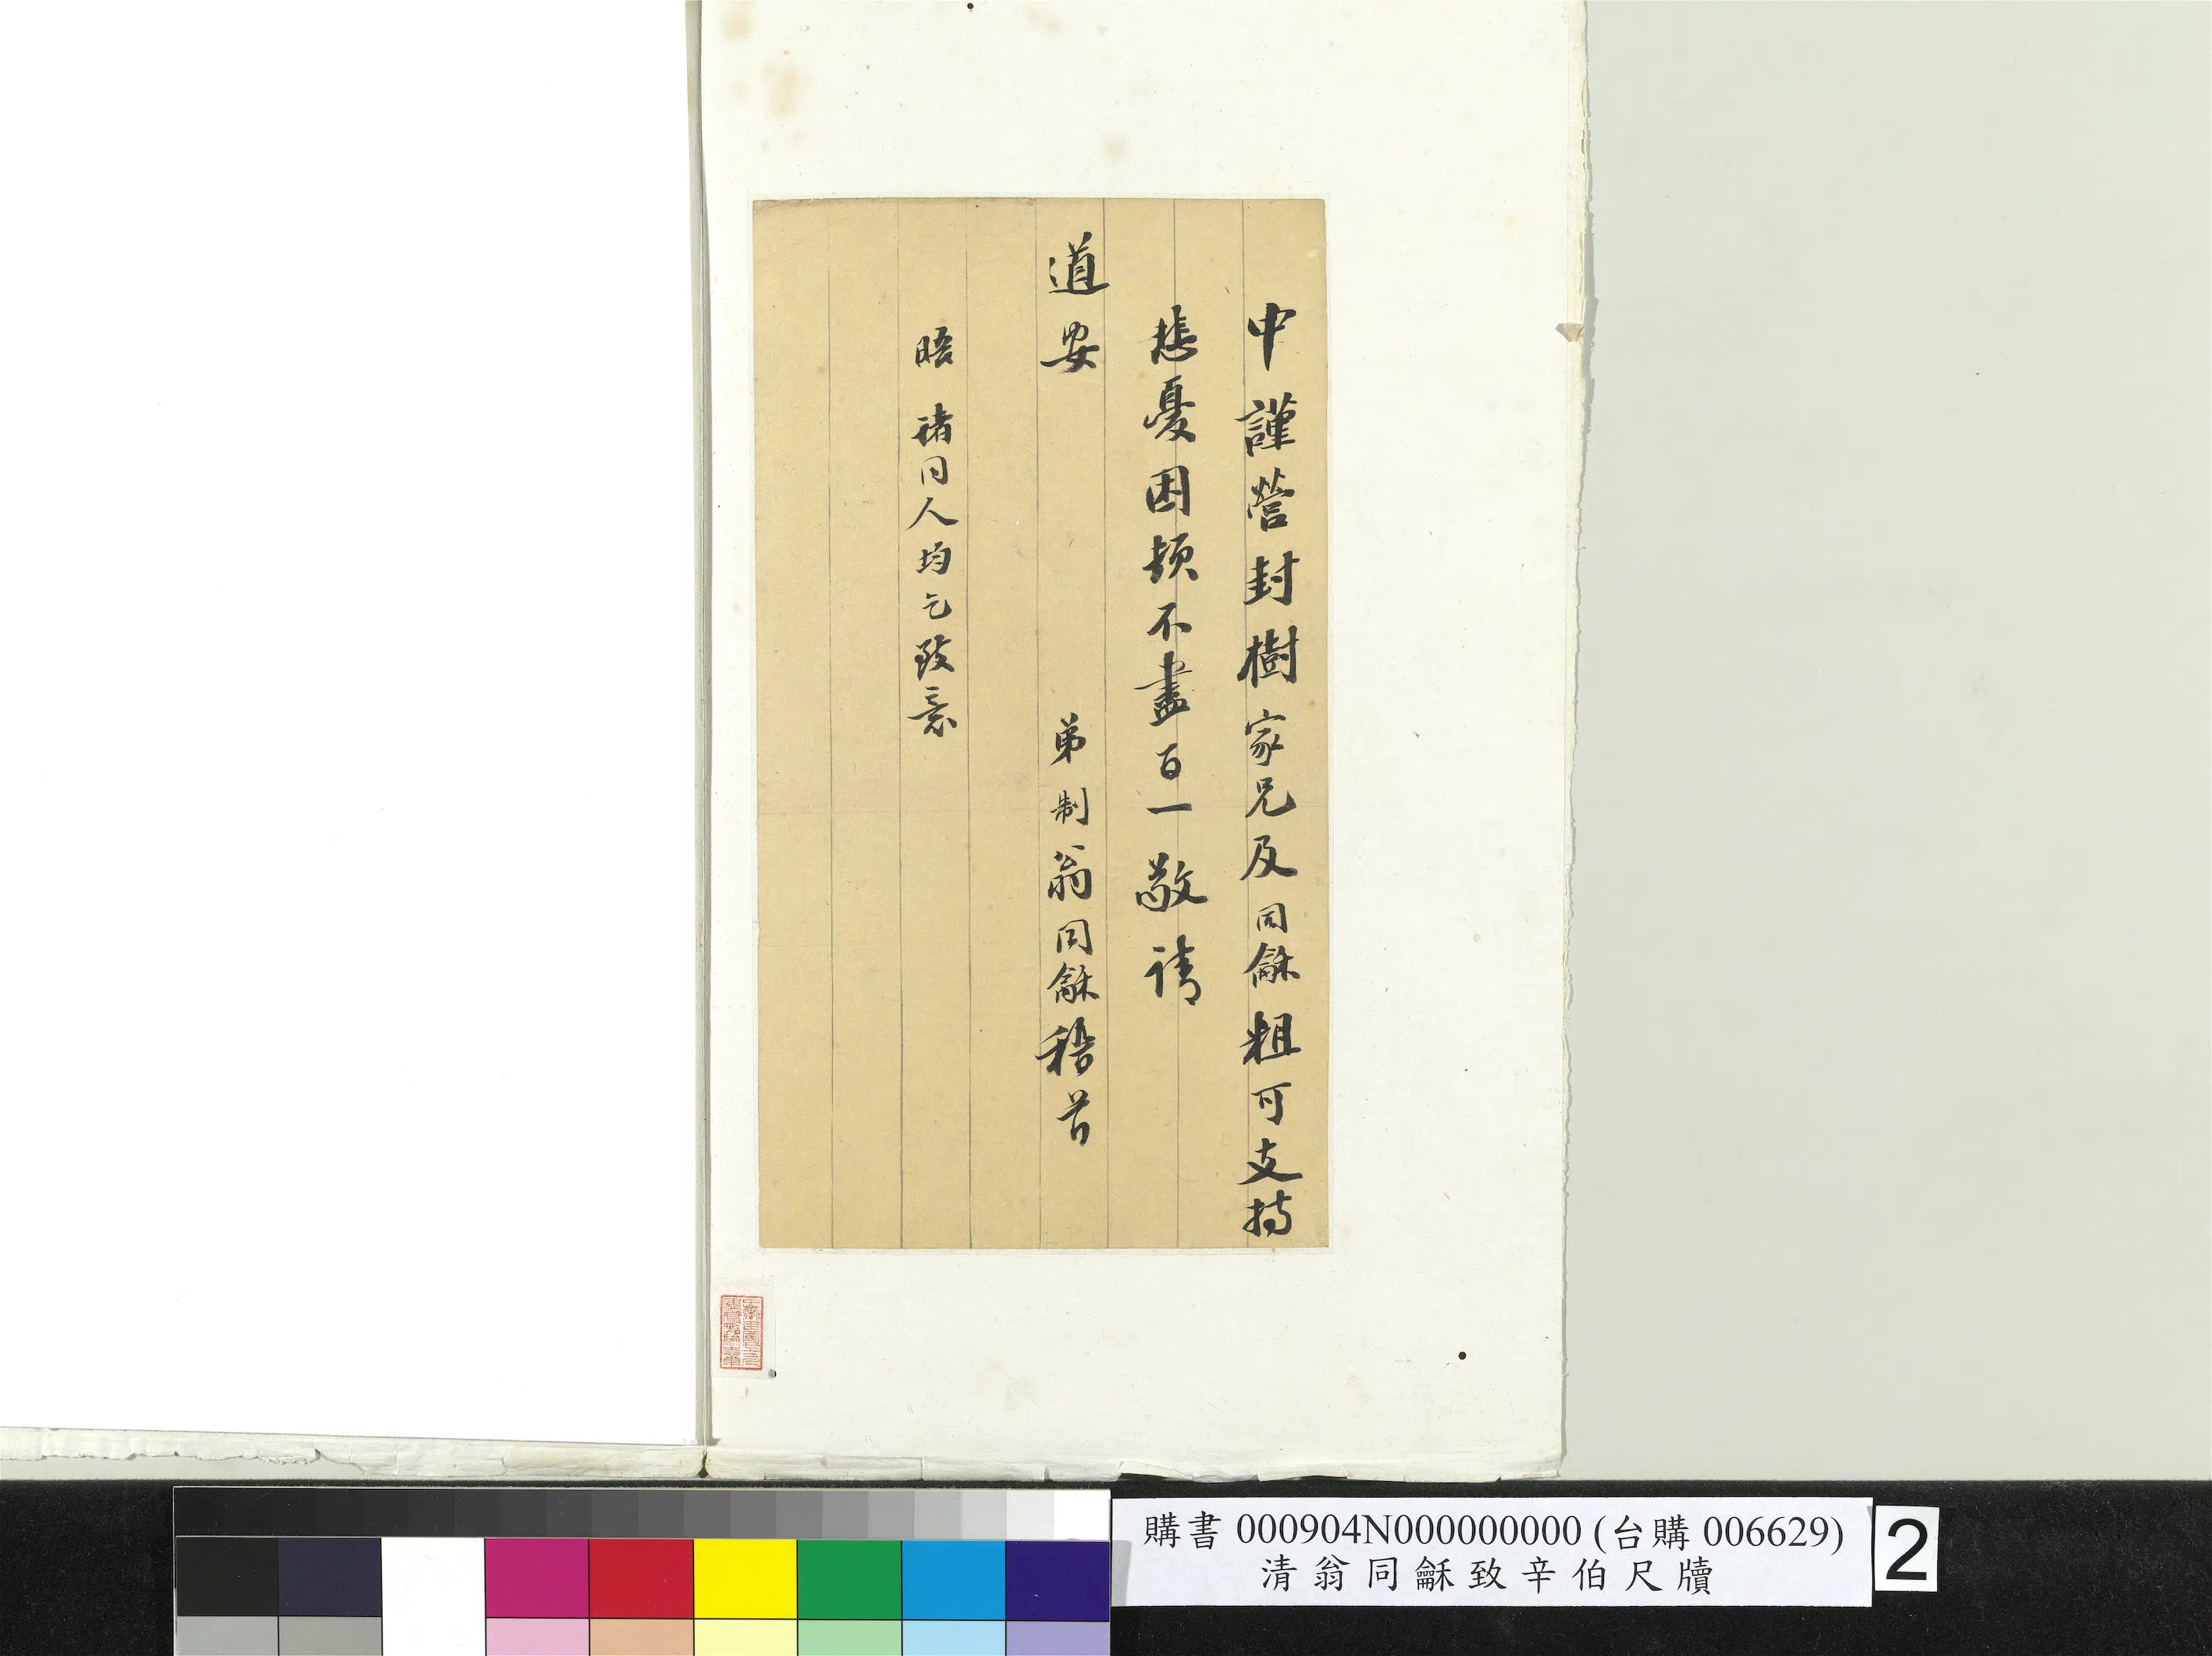 中謹營封樹家兄及同龢粗可支持
悲憂困頓不盡百一敬請
道安
弟制翁同龢稽首
晤諸同人均乞致意
購書 000904N000000000 (台購 006629)
清翁同龢致辛伯尺牘
2